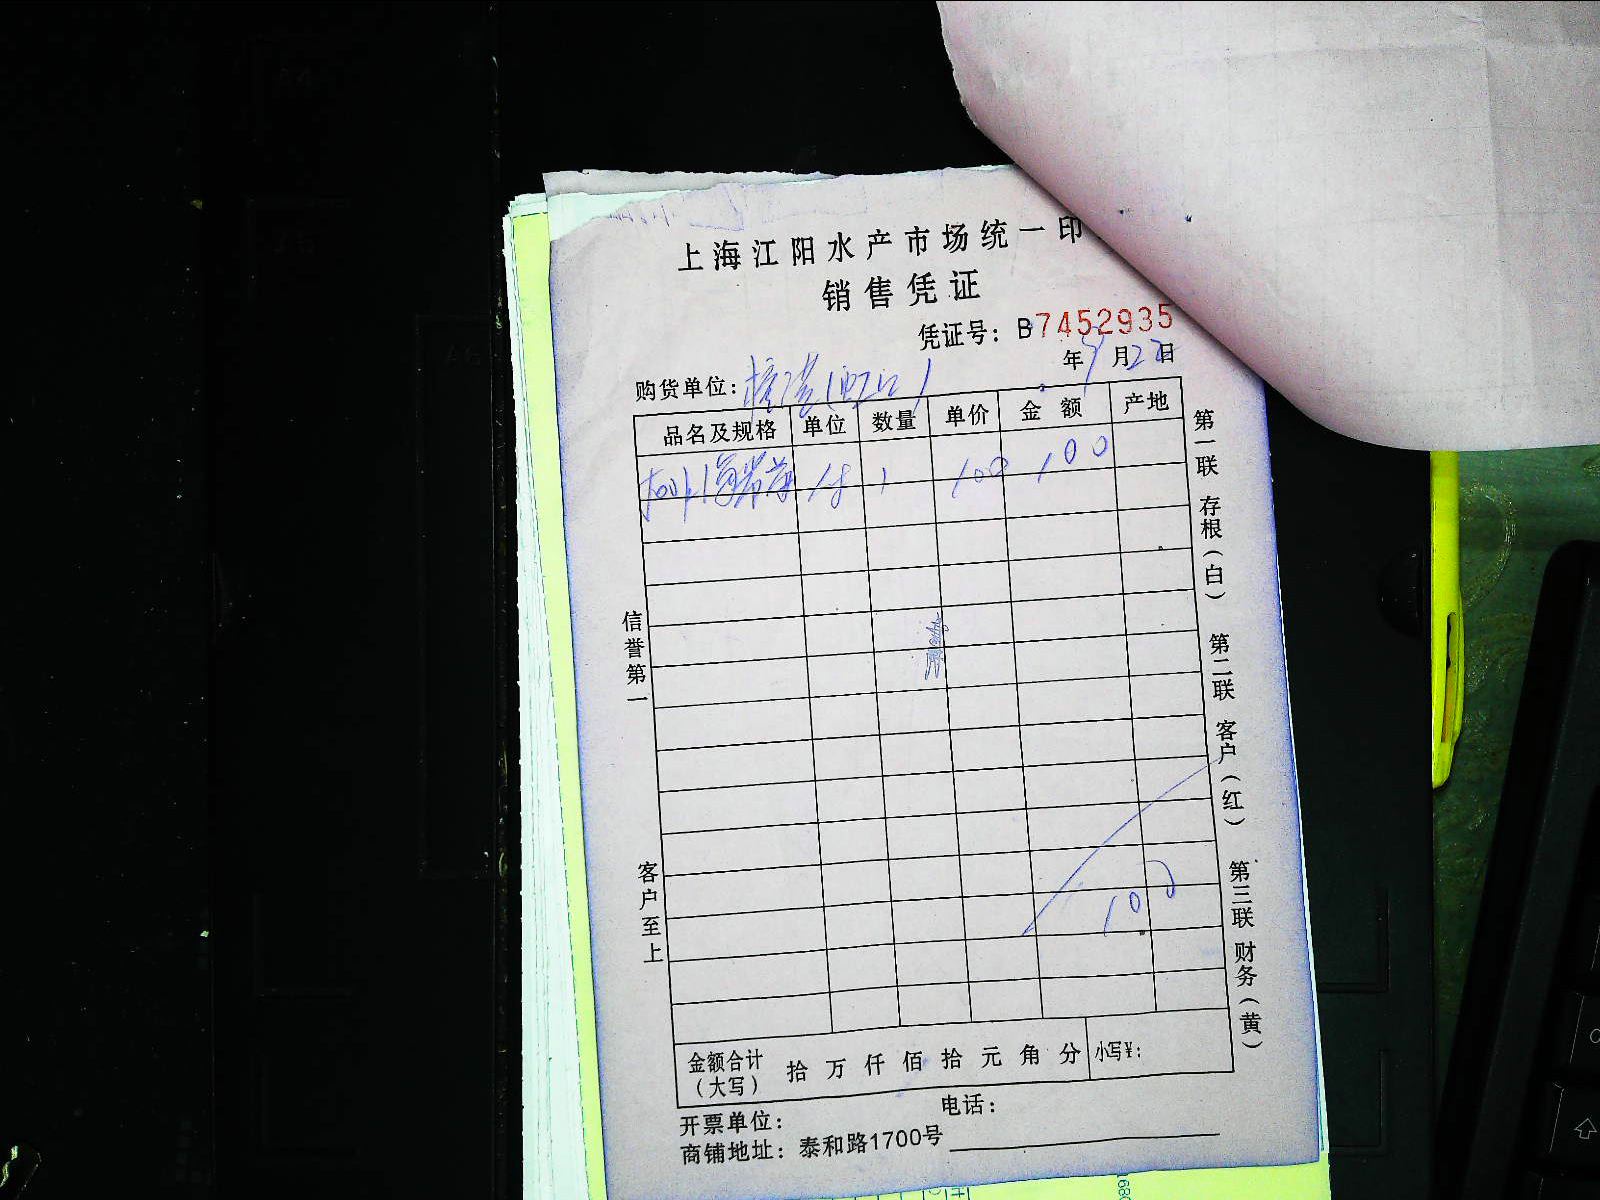 上海江阳水产市场统一印
销售凭证
凭证号：B7452935
年 月22日
购货单位： (虹口)
品名及规格 单位 数量 单价 金额 产地
海带 1 100 100
信誉第一
客户至上
100
第一联 存根（白） 第二联 客户（红） 第三联 财务（黄）
金额合计（大写） 拾 万 仟 佰 拾 元 角 分 小写¥：
开票单位： 电话：
商铺地址：泰和路1700号